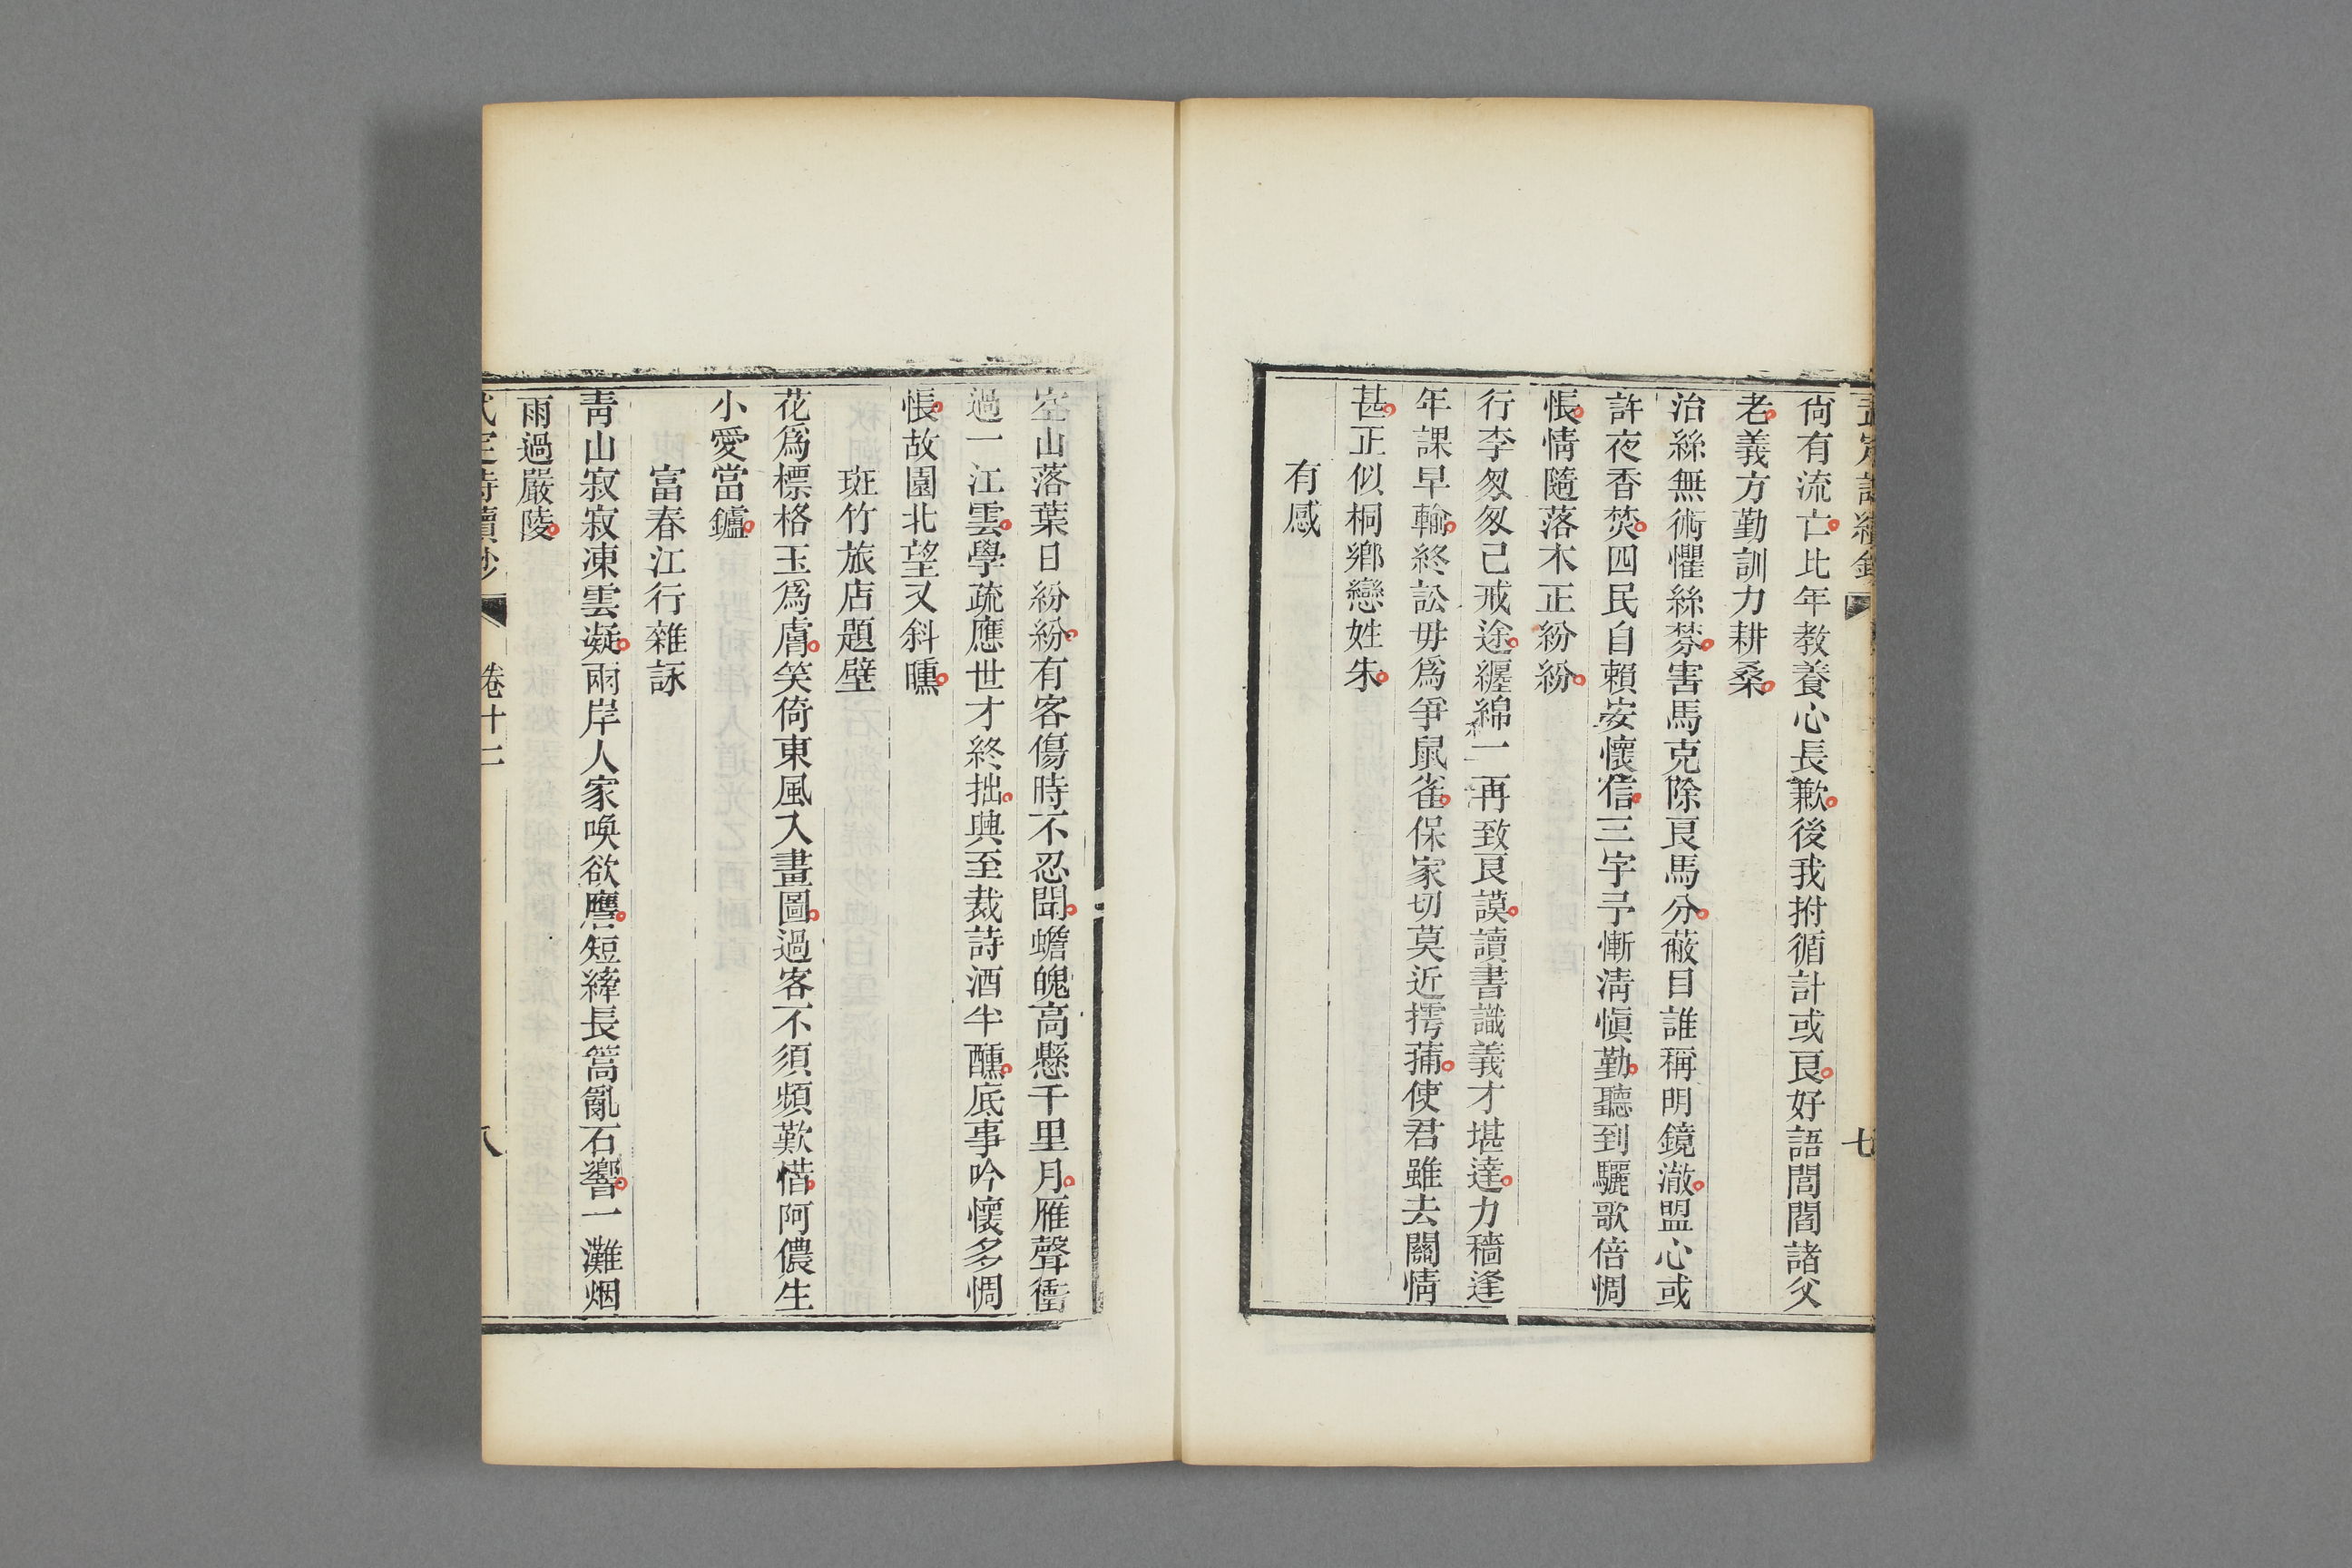 武定詩續鈔 七
尙有流亡比年教養心長歉後我拊循計或良好語閭閻諸父
老義方勤訓力耕桑
治絲無術懼絲棼害馬克除良馬分蔽目誰稱明鏡澈盟心或
許夜香焚四民自賴安懷信三字予慚淸愼勤聽到驪歌倍惆
悵情隨落木正紛紛
行李匆匆已戒途纏綿一再致良謨讀書識義才堪達力穡逢
年課早輸終訟毋爲爭鼠雀保家切莫近摴蒱使君雖去關情
甚正似桐鄕戀姓朱
有感
空山落葉日紛紛有客傷時不忍聞蟾魄高懸千里月雁聲衝
過一江雲學疏應世才終拙興至裁詩酒半醺底事吟懷多惆
悵故園北望又斜曛
斑竹旅店題壁
花爲標格玉爲膚笑倚東風入畫圖過客不須頻歎惜阿儂生
小愛當鑪
富春江行雜詠
靑山寂寂凍雲凝兩岸人家喚欲譍短縴長篙亂石響一灘烟
雨過嚴陵
武定詩續鈔 卷十二 八